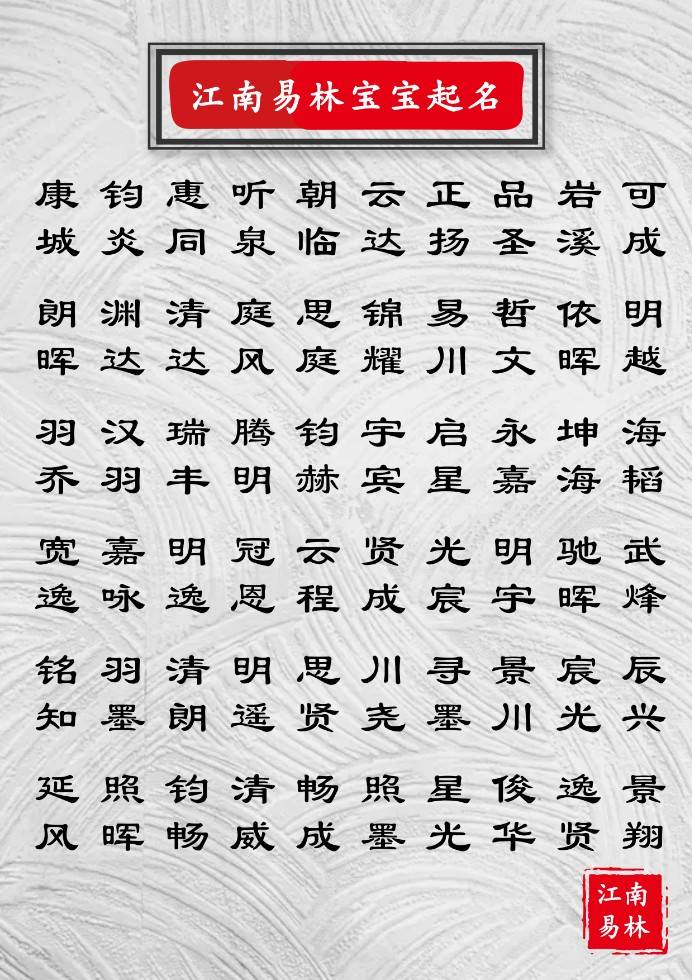 江南易林宝宝起名
康 钧 惠 听 朝 云 正 品 岩 可
城 炎 同 泉 临 达 扬 圣 溪 成
朗 渊 清 庭 思 锦 易 哲 依 明
晖 达 达 风 庭 耀 川 文 晖 越
羽 汉 瑞 腾 钧 宇 启 永 坤 海
乔 羽 丰 明 赫 宾 星 嘉 海 韬
宽 嘉 明 冠 云 贤 光 明 驰 武
逸 咏 逸 恩 程 成 宸 宇 晖 烽
铭 羽 清 明 思 川 寻 景 宸 辰
知 墨 朗 遥 贤 尧 墨 川 光 兴
延 照 钧 清 畅 照 星 俊 逸 景
风 晖 畅 威 成 墨 光 华 贤 翔
江南
易林